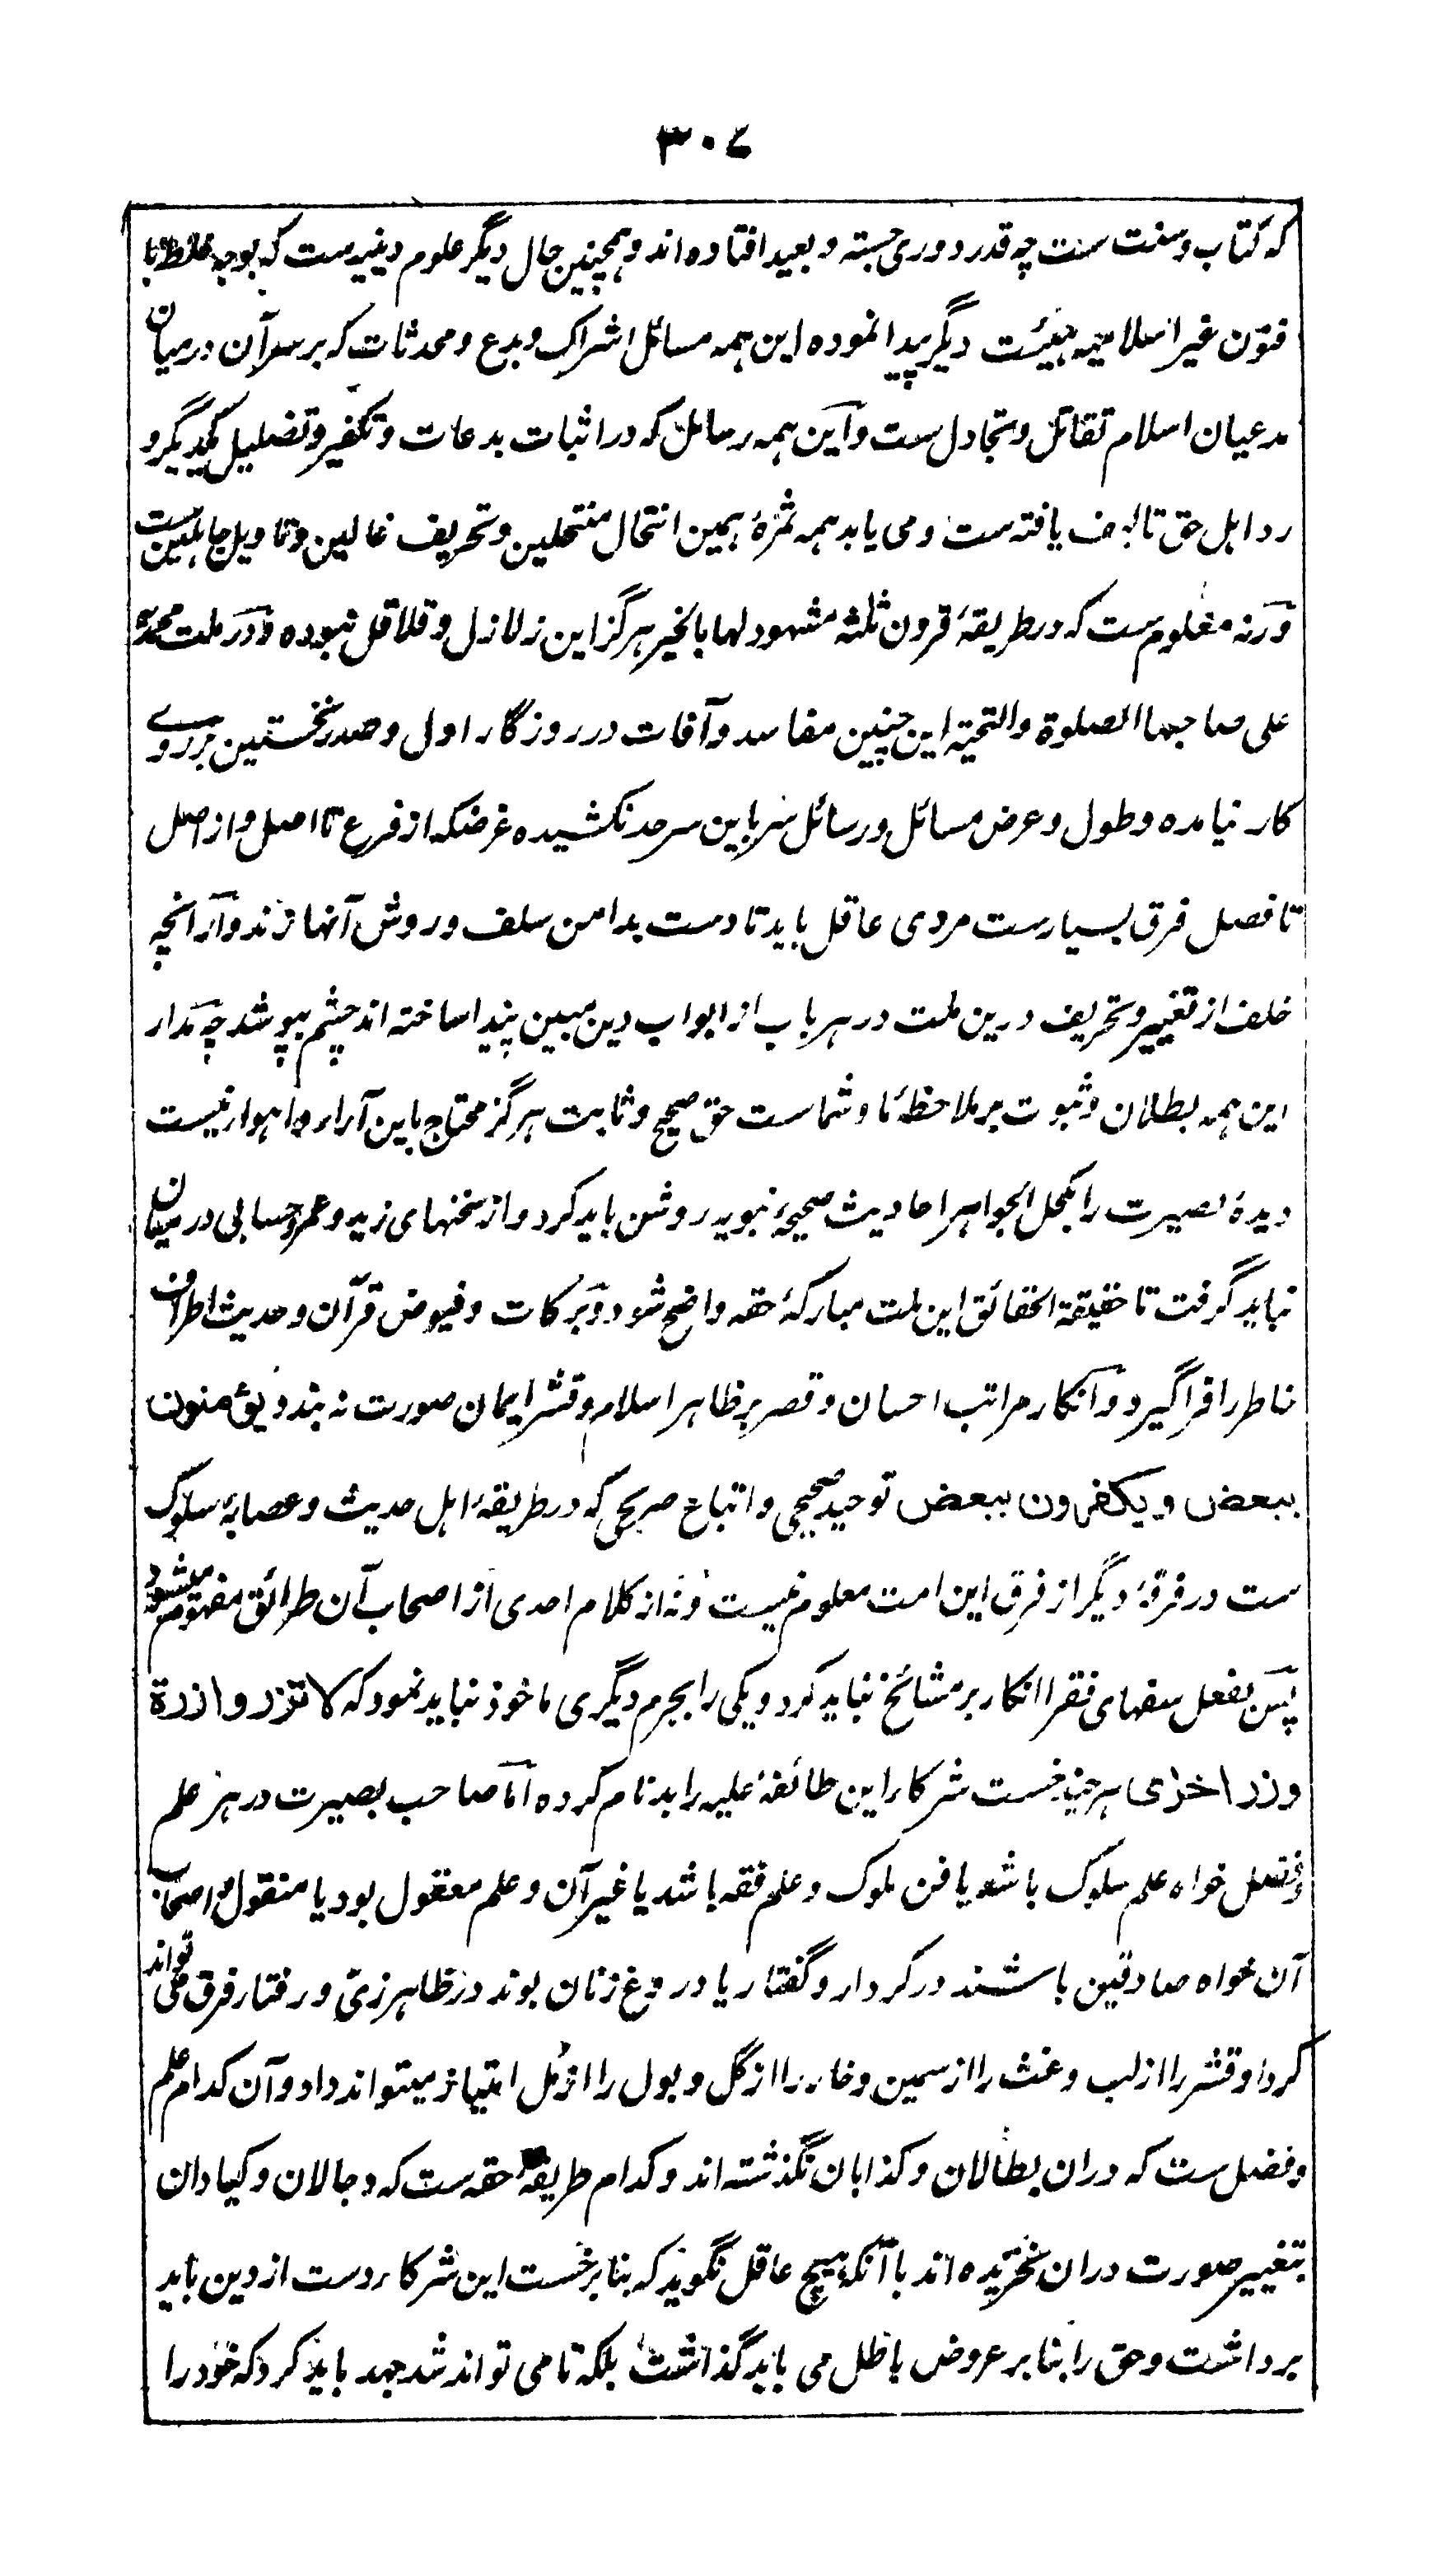 ۳۰۷
که کتاب و سنت ست چه قدر دوری جسته و بعید افتاده اند و همچنین حال دیگر علوم دینیه ست که بوجه خلط با
فنون غیر اسلامیه هیئت دیگر پیدا نموده این همه مسائل اشراک و بدع و محدثات که بر سر آن درمیان
مدعیان اسلام تقاتل و تجادل ست و این همه رسائل که در اثبات بدعات و تکفیر و تضلیل یکدیگر و
رد اهل حق تالیف یافته ست و می یابد همه ثمرهٔ همین انتحال منتحلین و تحریف غالین و تاویل جاهلین ست
ورنه معلوم ست که در طریقهٔ قرون ثلثه مشهود لها بالخیر هرگز این زلازل و قلاقل نبوده و در ملت محمدیه
علی صاحبها الصلوة والتحیة این چنین مفاسد و آفات در روزگار اول و صدر نخستین بر روے
کار نیامده و طول و عرض مسائل و رسائل سر باین سرحد نکشیده غرضکه از فرع تا اصل و از اصل
تا فصل فرق بسیارست مردی عاقل باید تا دست بدامن سلف و روش آنها زند و از آنچه
خلف از تغییر و تحریف درین ملت در هر باب از ابواب دین مبین پیدا ساخته اند چشم بپوشد چه مدار
این همه بطلان و ثبوت بر ملاحظهٔ ما و شماست حق صحیح و ثابت هرگز محتاج باین آراء و اهواء نیست
دیدهٔ بصیرت را بکحل الجواهر احادیث صحیحهٔ نبویه روشن باید کرد و از سخنهای زید و عمرو حسابی درمیان
نباید گرفت تا حقیقة الحقائق این ملت مبارکهٔ حقه واضح شود و برکات و فیوض قرآن و حدیث اطراف
خاطر را فراگیرد و انکار مراتب احسان و قصر بر ظاهر اسلام و قشر ایمان صورت نه بندد یؤمنون
ببعض و یکفرون ببعض توحید صحیحی و اتباع صریحی که در طریقهٔ اهل حدیث و عصابهٔ سلوک
ست در فرقهٔ دیگر از فرق این امت معلوم نیست و نه از کلام احدی از اصحاب آن طرائق مفهوم میشود
پس بفعل سفهای فقرا انکار بر مشائخ نباید کرد و یکی را بجرم دیگری ماخوذ نباید نمود که لا تزر وازرة
وزر اخری هر چند خست شرکا را این طائفهٔ علیه را بدنام کرده اما صاحب بصیرت در هر علم
و فضل خواه علم سلوک باشد یا فن ملوک و علم فقه باشد یا غیر آن و علم معقول بود یا منقول و اصحاب
آن خواه صادقین باشند در کردار و گفتار یا دروغ زنان بوند در ظاهر زیّ و رفتار فرق می تواند
کرد و قشر را از لب و غث را از سمین و خار را از گل و بول را از مُل امتیاز میتواند داد و آن کدام علم
و فضل ست که دران بطالان و کذابان نگذشته اند و کدام طریقهٔ حقه ست که دجالان و کیادان
بتغییر صورت دران نخزیده اند با آنکه هیچ عاقل نگوید که بنا بر خست این شرکا دست از دین باید
برداشت و حق را بنا بر عروض باطل می باید گذاشت بلکه تا می تواند شد جهد باید کرد که خود را